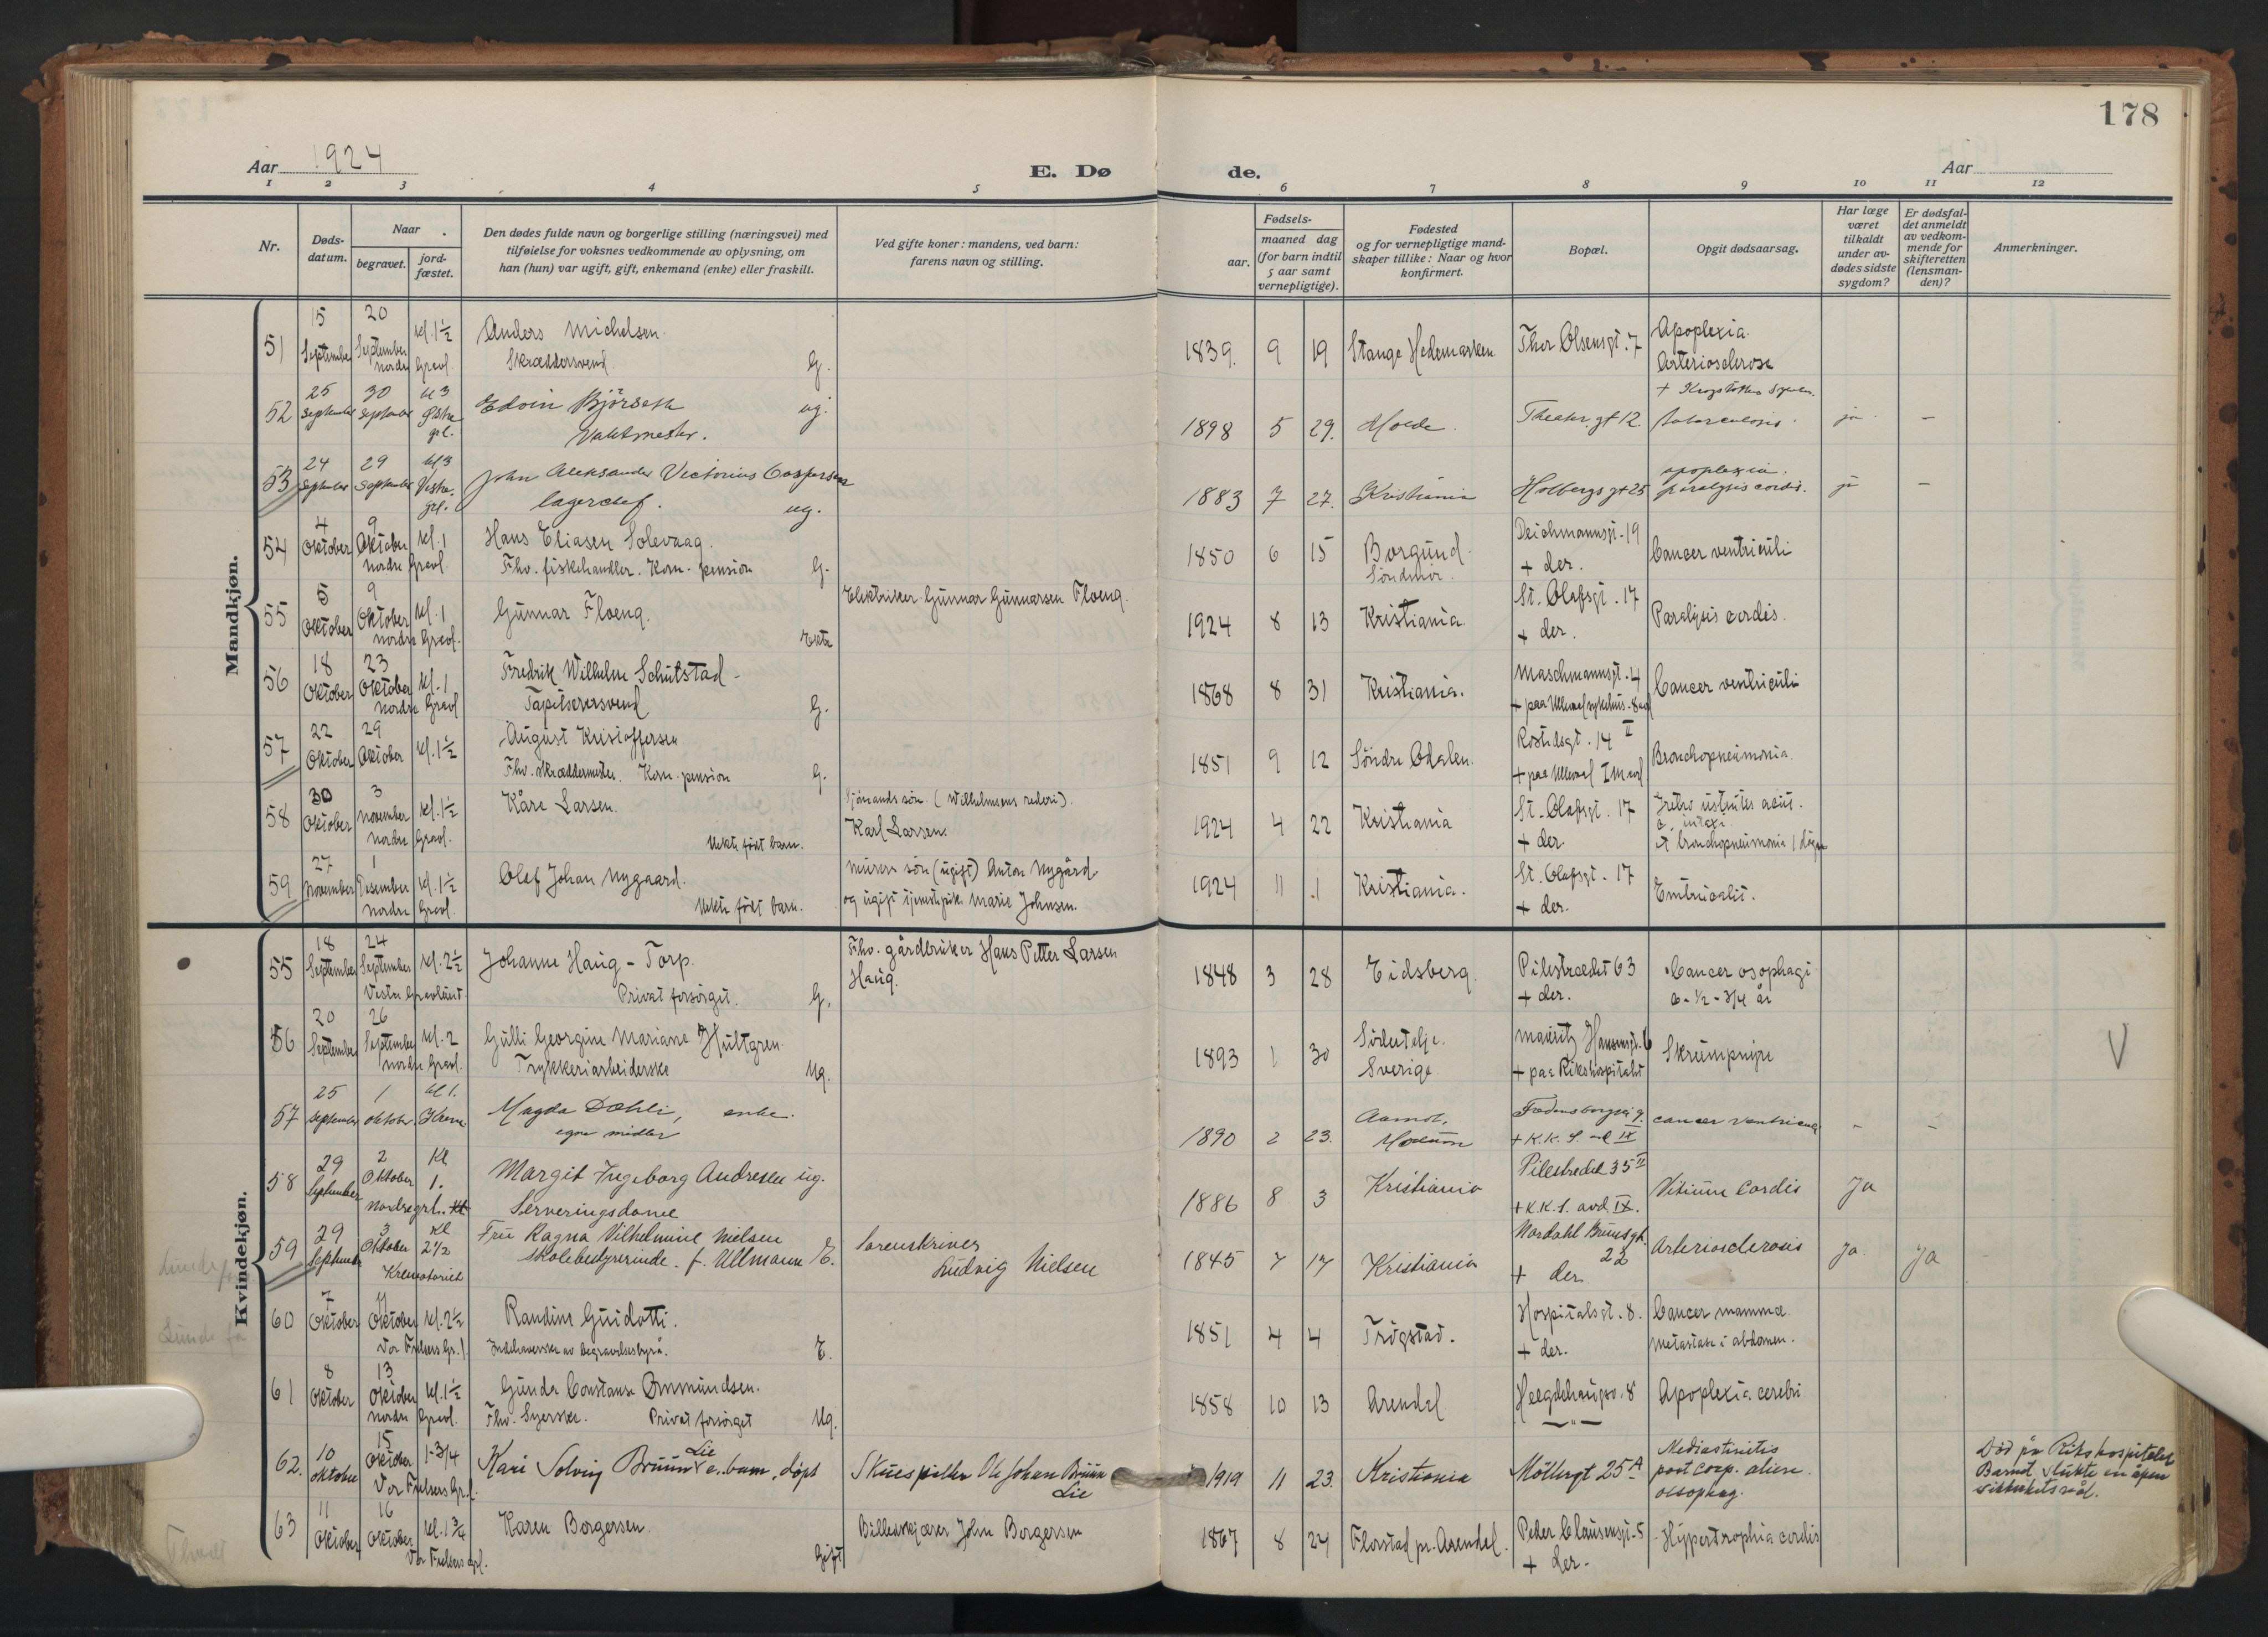 178
Aar 1924
E. Dø
de.
Aar
1 2 3 4 5 6 7 8 9 10 11 12
Nr.
Døds-
datum.
Naar
begravet.
jord-
fæstet.
Den dødes fulde navn og borgerlige stilling (næringsvei) med
tilføielse for voksnes vedkommende av oplysning, om
han (hun) var ugift, gift, enkemand (enke) eller fraskilt.
Ved gifte koner: mandens, ved barn:
farens navn og stilling.
Fødsels-
aar.
maaned dag
(for barn indtil
5 aar samt
vernepligtige).
Fødested
og for vernepligtige mand-
skaper tillike: Naar og hvor
konfirmert.
Bopæl.
Opgit dødsaarsag.
Har læge
været
tilkaldt
under av-
dødes sidste
sygdom?
Er dødsfal-
det anmeldt
av vedkom-
mende for
skifteretten
(lensman-
den)?
Anmerkninger.
Mandkjøn.
51 15 September 20 September nordre Gravl. kl. 1½ Anders Michelsen Skræddersvend. G. 1839. 9 19 Stange Hedemarken Thor Olsensgt. 7 Apoplexia. Arteriosclerose
52 25 September 30 September kl 3 Østre grl. Edvin Björseth Vaktmester. ug. 1898 5 29. Molde. Theater.gt 12 tuberculosis. ja -
53 24 September 29 September kl 3 Vestre. grl. John Aleksander Victorius Caspersen lagerchef. ug. 1883 7 27. Kristiania Holbergs gt 25 apoplexia. paralysis cordis. ja -
54 4 Oktober 9 Oktober nordre Gravl. kl. 1 Hans Eliasen Solevaag. Fhv. fiskehandler. Kom. pension G. 1850 6 15 Borgund. Söndmör. Deichmannsgt. 19 + der. Cancer ventriculi
55 5 Oktober 9 Oktober nordre Gravl. kl. 1 Gunnar Floeng. Ekte Elektriker Gunnar Gunnarsen Floeng. 1924 8 13 Kristiania. St. Olafsgt. 17 + der. Paralysis cordis.
56 18 Oktober 23 Oktober nordre Gravl kl. 1 Fredrik Wilhelm Schutstad. Tapetserersvend G. 1868 8 31 Kristiania. Maschmannsgt. 4 + paa Ullevaal sykehus. 8 avd Cancer ventriculi
57 22 Oktober 29 Oktober kl. 1½ August Kristoffersen Fhv. skræddermester. Kom. pension G. 1851 9 12 Söndre Odalen. Rostedsgt. 14 II + paa Ullevaal Bronchopneumonia.
58 30 Oktober 3 November nordre Gravl. kl. 1½ Kåre Larsen. Uekte født barn. Sjömands sön (Wilhelmsens rederi). Karl Larsen. 1924 4 22 Kristiania St. Olafsgt. 17 + der bronchopneumonia
59 27 November 1 Desember nordre Gravl. kl. 1½ Olaf Johan Nygaard. Uekte født barn. Murers sön (ugift) Anton Nygård og ugift tjenestepike Marie Johnsen. 1924 11 1 Kristiania. St. Olafsgt. 17 + der.
Kvindekjøn.
55 18 September 24 September Vestre Gravlund. kl. 2½ Johanne Haug - Torp. Privat forsörget. G. Fhv. gårdbruker Hans Petter Larsen Haug. 1848 3 28 Eidsberg. Pilestrædet 63 + der. Cancer osophagi ½ - 3/4 år
56 20 September 26 September nordre Gravl. kl. 2 Gulli Georgine Mariane Hultgren. Trykkeriarbeiderske Ug. 1893 1 30 Södertelje. Sverige Mauritz Hansensgt. 6 + paa Rikshospitalet Skrumpnyre V
57 25 September 1 Oktober kl 1. Krem. Magda Dæhli, enke. egne midler 1890 2 23. Modum Fredensborgvei 9. + K.K.S. avd IX cancer ventriculi - -
58 29 September 2 Oktober Nordre grl. Kl 1. Margit Ingeborg Andresen ug. Serveringsdame 1886 8 3 Kristiania Pilestrædet 35 II + K.K.S. avd IX. Vitium Cordis Ja
59 29 September 3 Oktober Krematoriet kl 2½ Fru Ragna Vilhelmine Nielsen skolebestyrerinde. f. Ullmann E. Sorenskriver Ludvig Nielsen 1845 7 17 Kristiania Nordahl Brunsgt. 22 + der Arteriosclerosis Ja Ja
60 7 Oktober 11 Oktober Vor Frelsers Gr.l kl. 2½ Randine Guidotti. Indehaverske av begravelsesbyrå. E. 1851 4 4 Trögstad. Hospitalsgt. 8. + der. Cancer mamma metastase i abdomen.
61 8 Oktober 13 Oktober nordre Gravl. kl. 1½ Gunda Constanse Ommundsen. Fhv. Syerske. Privat forsörget Ug. 1858 10 13 Arendal Hegdehaugsv. 8 —"— Apoplexia cerebri
62. 10 oktober 15 Oktober Vor Frelsers Gr.l. 1-3/4 Kari Solvig Bruun Lie e. barn, døpt Skuespiller Ole Johan Bruun Lie 1919 11 23. Kristiania Möllergt 25 A Mediastinitis post corp. alien. oesophag. Död på Rikshospitalet Barnet slukte en åpen sikkerhetsnål.
63 11 Oktober 16 Oktober Vor Frelsers grl. kl. 1 3/4 Karen Borgersen. Gift Billedskjærer John Borgersen 1867 8 24 Flosstad pr. Arendal. Peder Clausensgt. 5 + der. Hypertrophia cordis